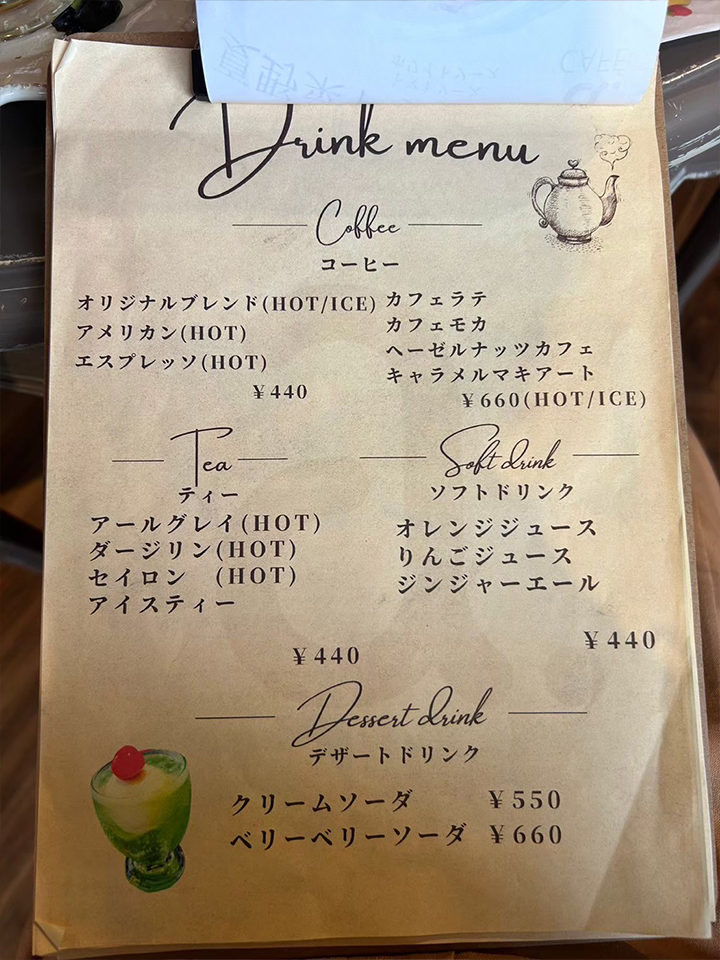 Drink menu
Coffee
コーヒー
オリジナルブレンド(HOT/ICE)
アメリカン(HOT)
エスプレッソ(HOT)
￥440
カフェラテ
カフェモカ
ヘーゼルナッツカフェ
キャラメルマキアート
￥660(HOT/ICE)
Tea
ティー
アールグレイ(HOT)
ダージリン(HOT)
セイロン　(HOT)
アイスティー
￥440
Soft drink
ソフトドリンク
オレンジジュース
りんごジュース
ジンジャーエール
￥440
Dessert drink
デザートドリンク
クリームソーダ　￥550
ベリーベリーソーダ　￥660